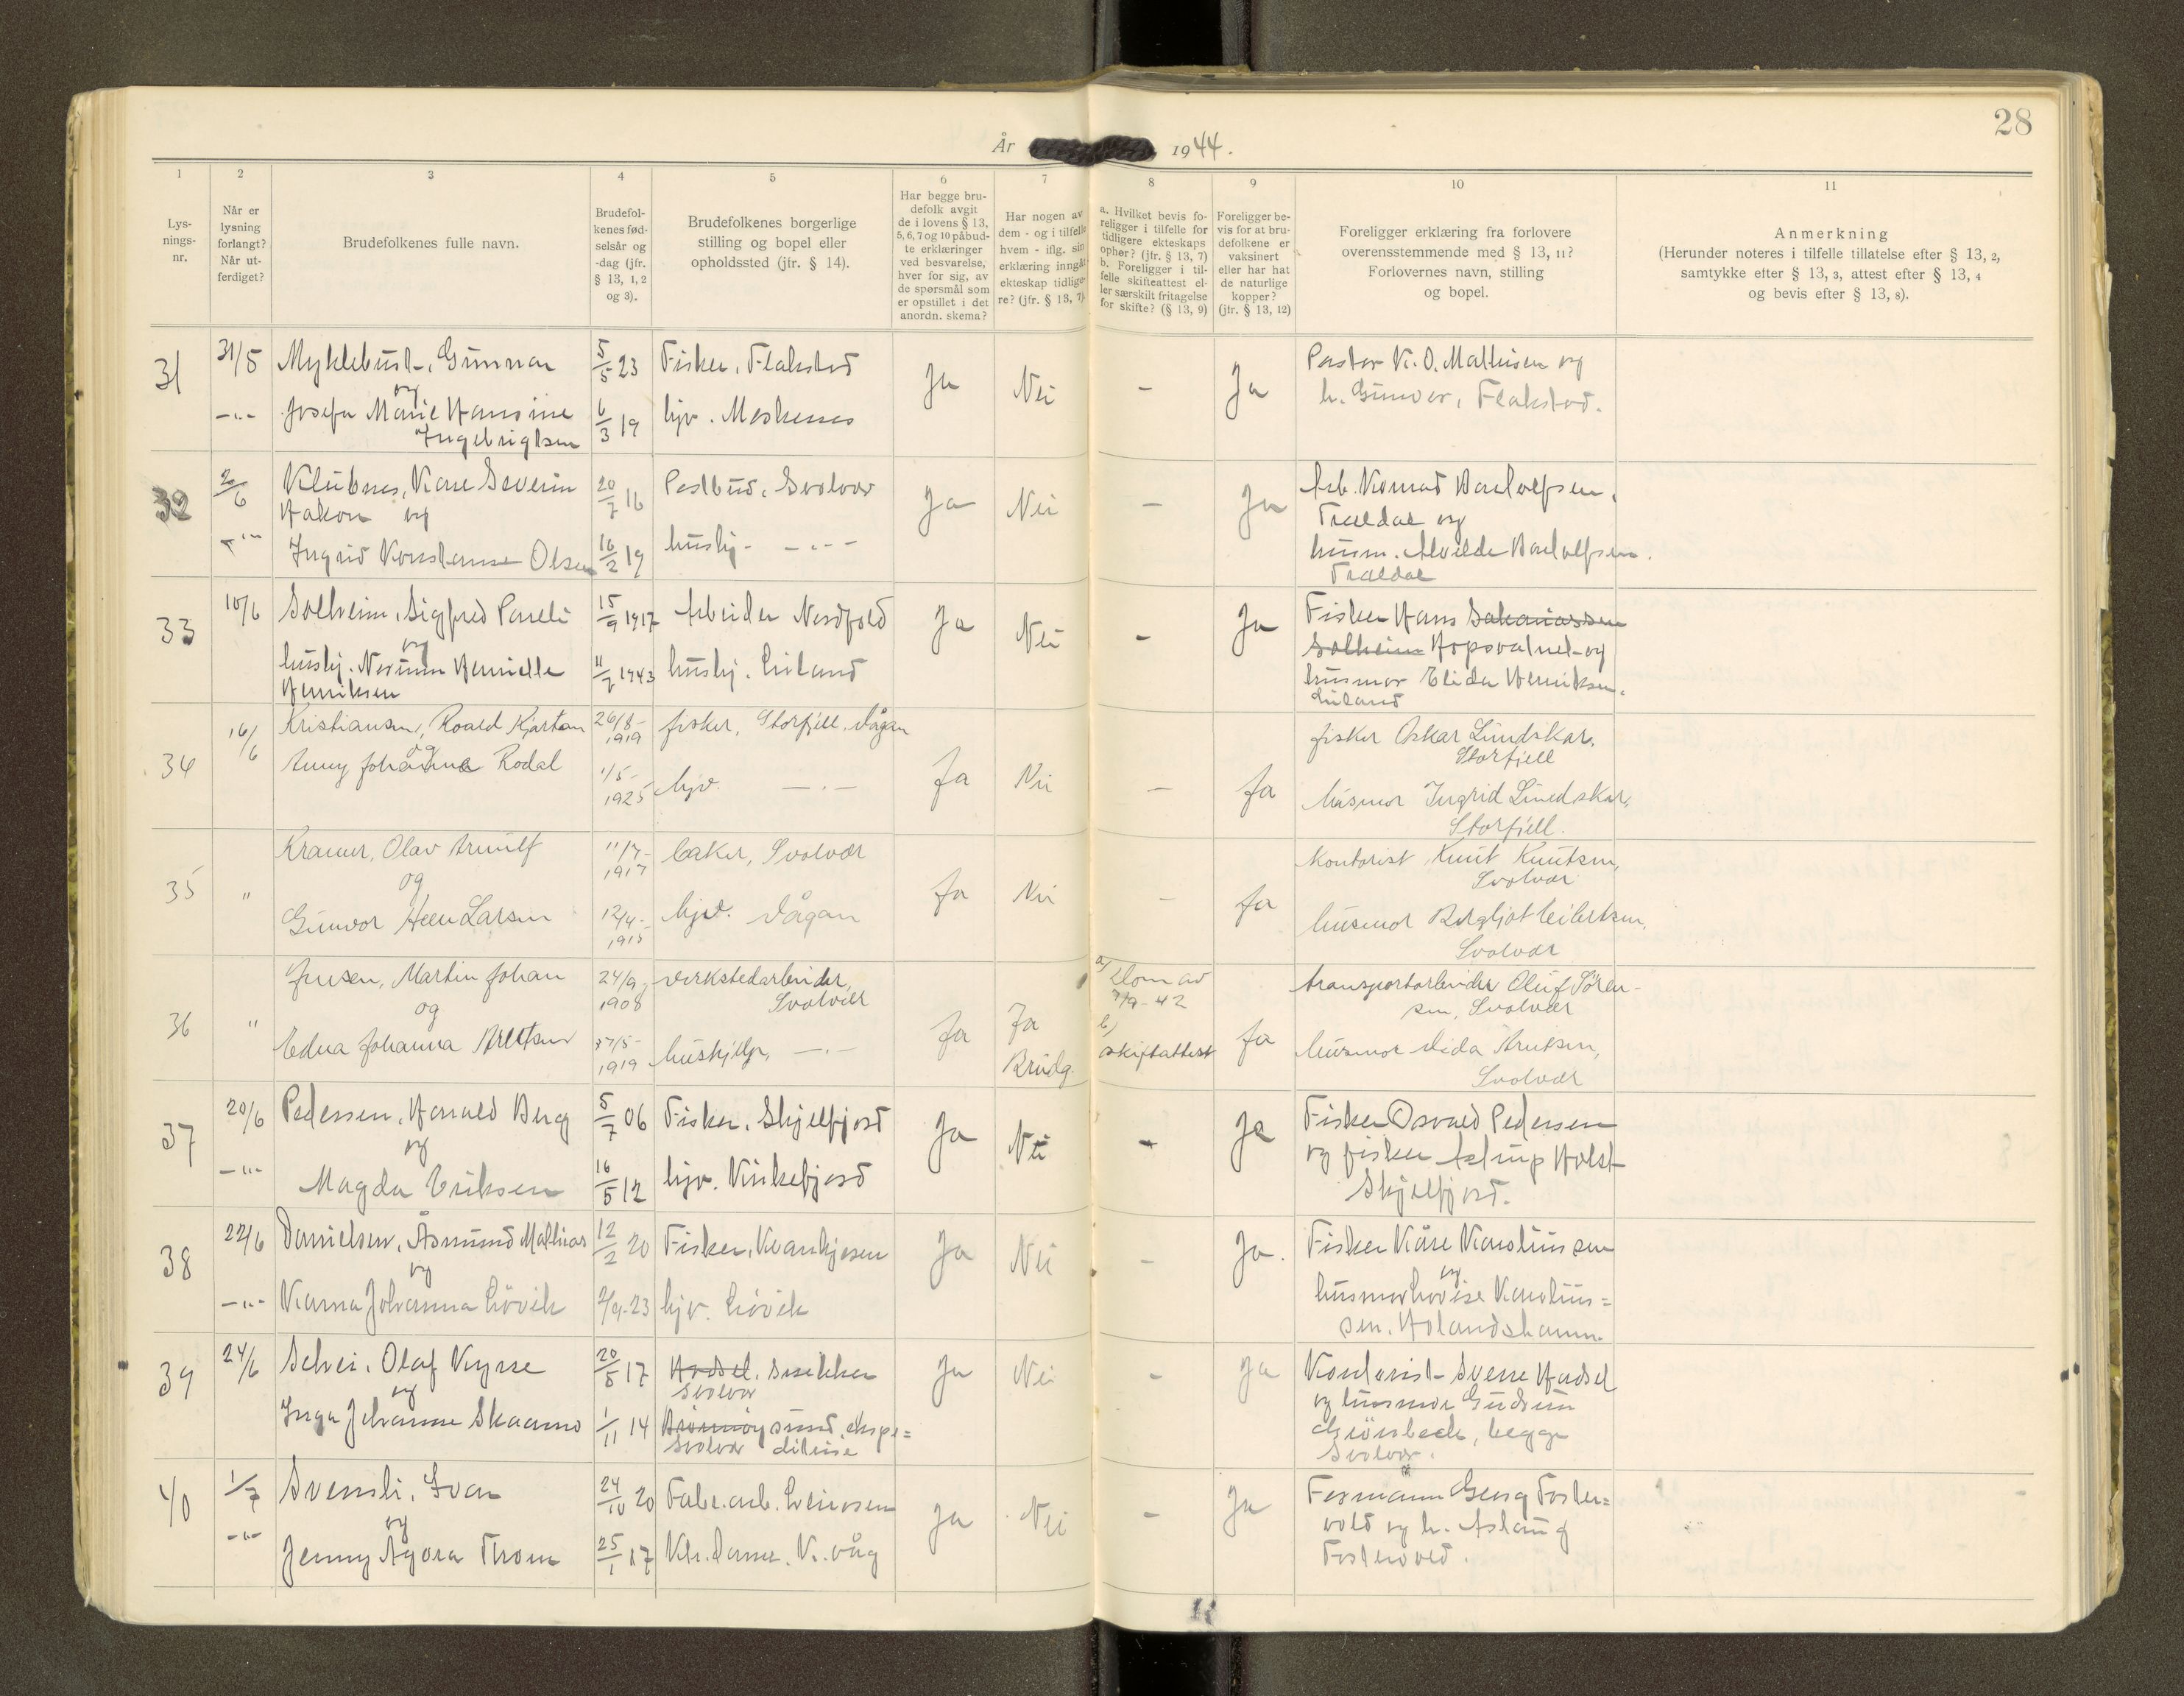 28
År 1944.
1 2 3 4 5 6 7 8 9 10 11
Lys-
nings-
nr.
Når er
lysning
forlangt?
Når ut-
ferdiget?
Brudefolkenes fulle navn.
Brudefol-
kenes fød-
selsår og
-dag (jfr.
§ 13, 1, 2
og 3).
Brudefolkenes borgerlige
stilling og bopel eller
opholdssted (jfr. § 14).
Har begge bru-
defolk avgit
de i lovens § 13,
5, 6, 7 og 10 påbud-
te erklæringer
ved besvarelse,
hver for sig, av
de spørsmål som
er opstillet i det
anordn. skema?
Har nogen av
dem - og i tilfelle
hvem - iflg. sin
erklæring inngåt
ekteskap tidlige-
re? (jfr. § 13, 7)
a. Hvilket bevis fo-
religger i tilfelle for
tidligere ekteskaps
ophør? (jfr. § 13, 7)
b. Foreligger i til-
felle skifteattest el-
ler særskilt fritagelse
for skifte? (§ 13, 9)
Foreligger be-
vis for at bru-
defolkene er
vaksinert
eller har hat
de naturlige
kopper?
(jfr. § 13, 12)
Foreligger erklæring fra forlovere
overensstemmende med § 13, 11?
Forlovernes navn, stilling
og bopel.
Anmerkning
(Herunder noteres i tilfelle tillatelse efter § 13, 2,
samtykke efter § 13, 3, attest efter § 13, 4
og bevis efter § 13, 8).
31 31/5 Myklebust, Gunnar 5/5 23 Fisker, Flakstad Ja Nei - Ja Pastor K. O. Mathisen og
og
-"- Josefa Marie Hansine 6/3 19 hjv. Moskenes h. Gunvor, Flakstad.
Ingebrigtsen
32 2/6 Klubnes, Kåre Severin 20/7 16 Postbud, Svolvær Ja Nei - Ja Arb. Konrad
Håkon og Trældal og
-"- Ingrid Konstanse Olsen 16/2 19 hushj. -"- husm. Alvilde
Trældal
33 10/6 Solheim, Sigfred Pareli 15/9 1917 Arbeider Nordfold Ja Nei - Ja Fisker Hans Sakariassen
og Solheim Hopsvatnet og
hushj. Henriette 11/2 1943 hushj. Liland husmor Elida Henriksen.
Henriksen Liland
34 16/6 Kristiansen, Roald Kjartan 26/8- 1919 fisker, Storfjell, Vågan Ja Nei - Ja fisker Oskar Lundskar,
og Storfjell
Anny Johanna Rodal 1/5- 1925 hjv. -"- husmor Ingrid Lundskar,
Storfjell.
35 " Kramer, Olav Arnulf 11/7- 1917 baker, Svolvær Ja Nei - Ja kontorist Knut Knutsen,
og Svolvær
Gunvor Heen Larsen 12/4- 1915 hjv. Vågan husmor Bergljot Eilertsen,
Svolvær
36 " Jensen, Martin Johan 24/9- 1908 verkstedarbeider, Svolvær Ja Ja Brudg. a) Dom av 7/9-42 b) skifteattest Ja transportarbeider Oluf Sören-
og sen, Svolvær
Edna Johanna Arntsen 27/5- 1919 hushjelp, -"- husmor Vida Arntsen,
Svolvær
37 20/6 Pedersen, Harald Berg 5/7 06 Fisker, Skjelfjord Ja Nei - Ja Fisker Osvald Pedersen
og og fisker Astrup Holst
-"- Magda Eriksen 16/5 12 hjv. Kirkefjord Skjelfjord.
38 22/6 Danielsen, Åsmund Mathias 12/2 20 Fisker, Kvanhjosen Ja Nei - Ja. Fisker Kåre Karoliussen
og og
-"- Karna Johanna Lövik 2/9-23 hjv. Lövik husmor Lovise Karolius=
sen. Holandshamn
39 24/6 Selvei, Olaf Kyrre 20/8 17 Hadsel, snekker Ja Nei - Ja Kontorist Sverre Hadsel
og Svolvær og husmor Gudrun
Inga Johanne Skaanø 1/11 14 Brönnöysund, ekspe= Grönbech, begge
Svolvær ditrise Svolvær.
40 1/7 Svensli, Ivan 24/10 20 Fabr.arb. Leinesen Ja Nei - Ja Formann Georg Foster=
og vold og h. Aslaug
-"- Jenny Agora Throm 25/1 17 K. våg Fostervold.